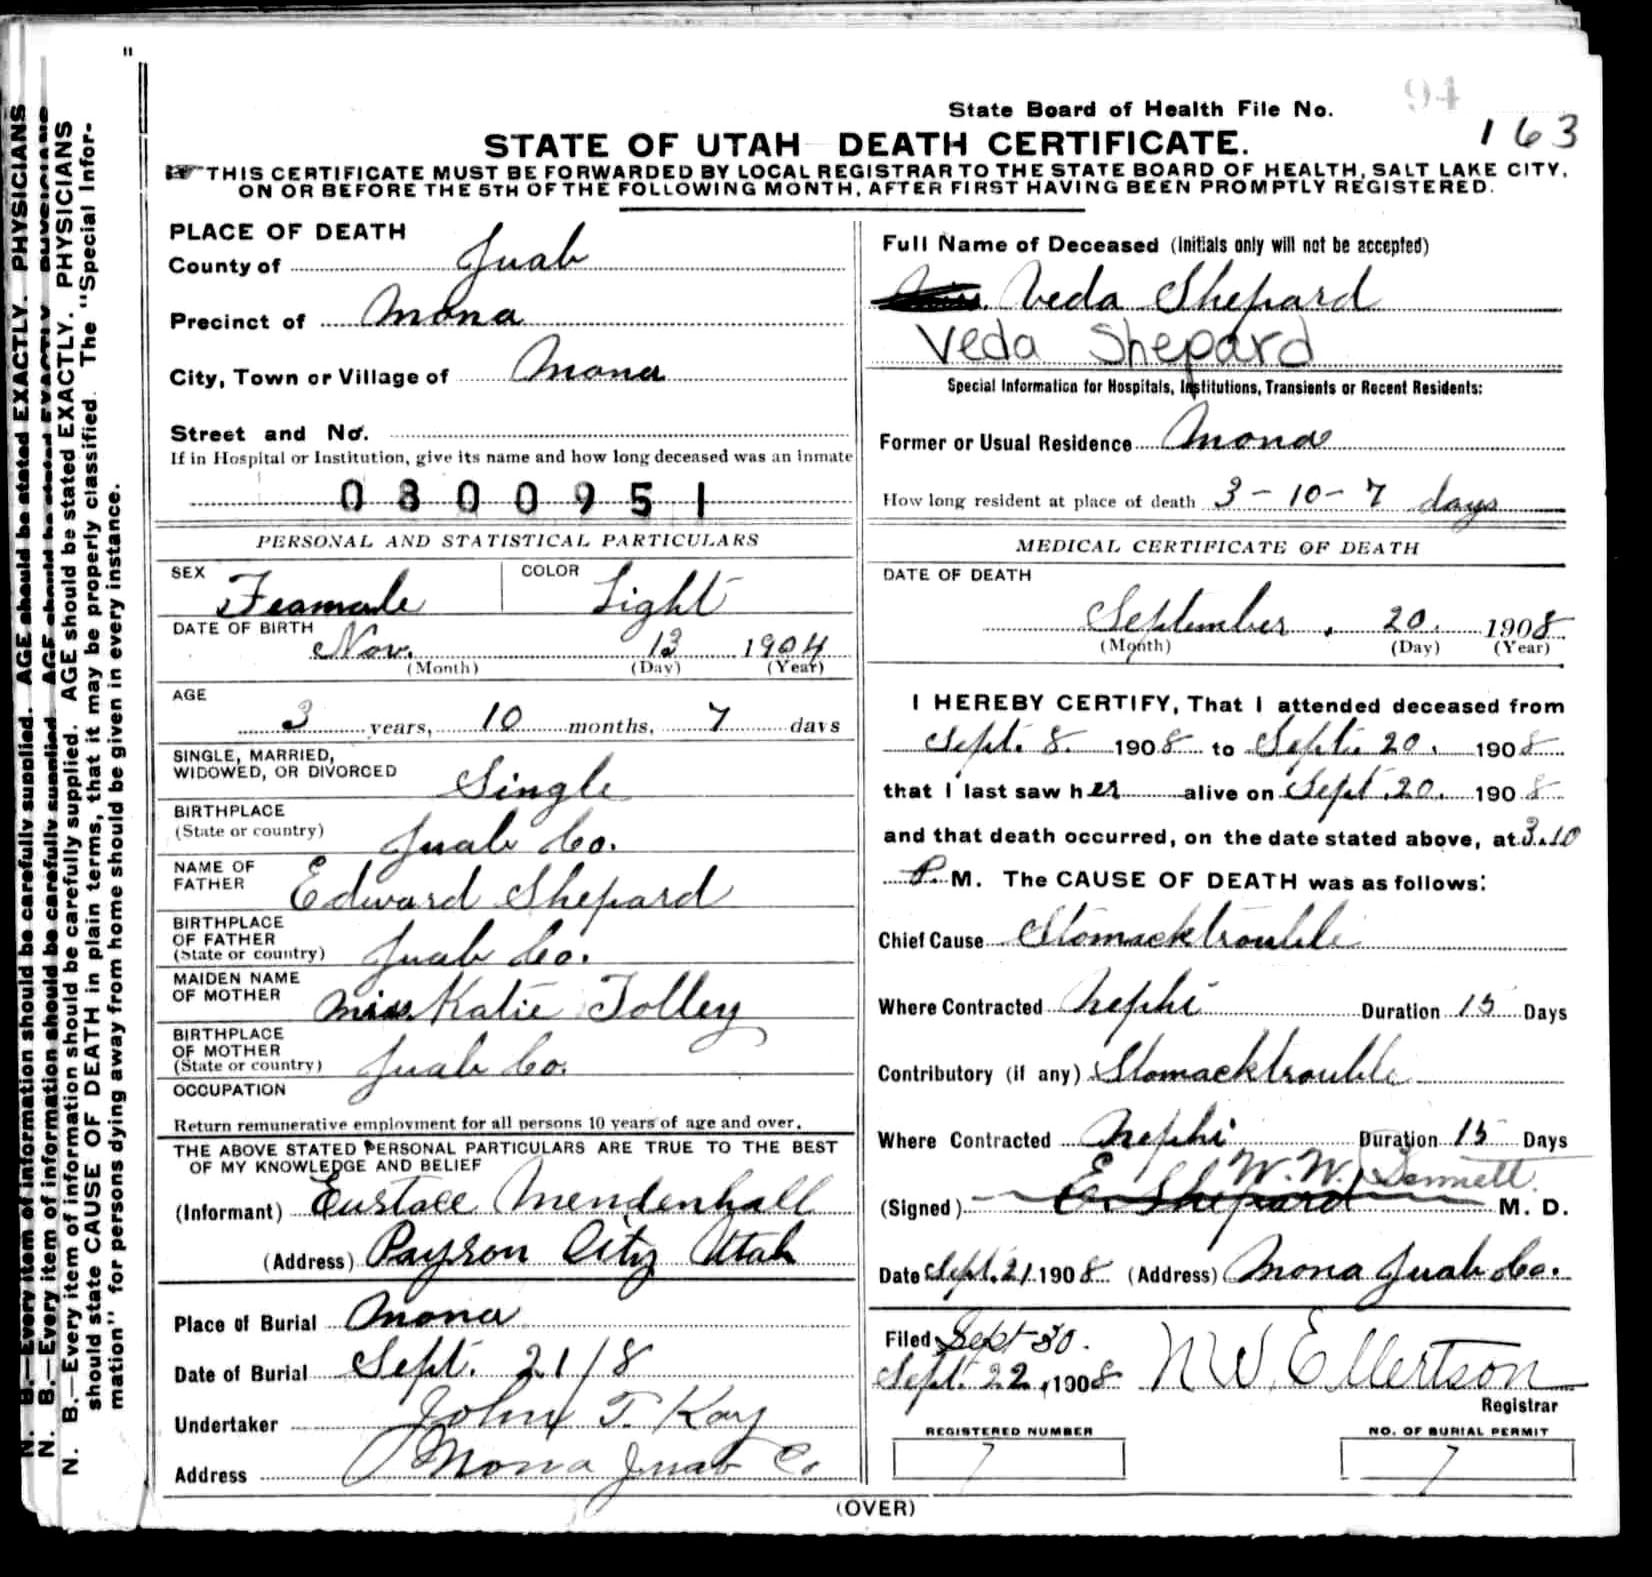 "
94
State Board of Health File No.
163
STATE OF UTAH DEATH CERTIFICATE.
THIS CERTIFICATE MUST BE FORWARDED BY LOCAL REGISTRAR TO THE STATE BOARD OF HEALTH, SALT LAKE CITY,
ON OR BEFORE THE 5TH OF THE FOLLOWING MONTH, AFTER FIRST HAVING BEEN PROMPTLY REGISTERED.
N. B.—Every item of information should be carefully supplied. AGE should be stated EXACTLY. PHYSICIANS
N. B.—Every item of information should be carefully supplied. AGE should be stated EXACTLY. PHYSICIANS
N. B.—Every item of information should be carefully supplied. AGE should be stated EXACTLY. PHYSICIANS
should state CAUSE OF DEATH in plain terms, that it may be properly classified. The "Special Infor-
mation" for persons dying away from home should be given in every instance.
PLACE OF DEATH
County of Juab
Precinct of Mona
City, Town or Village of Mona
Street and No.
If in Hospital or Institution, give its name and how long deceased was an inmate
0800951
PERSONAL AND STATISTICAL PARTICULARS
SEX Feamale COLOR Light
DATE OF BIRTH
Nov. 13 1904
(Month) (Day) (Year)
AGE
3 years, 10 months, 7 days
SINGLE, MARRIED,
WIDOWED, OR DIVORCED Single
BIRTHPLACE
(State or country) Juab Co.
NAME OF
FATHER Edward Shepard
BIRTHPLACE
OF FATHER
(State or country) Juab Co.
MAIDEN NAME
OF MOTHER Miss. Katie Tolley
BIRTHPLACE
OF MOTHER
(State or country) Juab Co.
OCCUPATION
Return remunerative employment for all persons 10 years of age and over.
THE ABOVE STATED PERSONAL PARTICULARS ARE TRUE TO THE BEST
OF MY KNOWLEDGE AND BELIEF
(Informant) Eustace Mendenhall
(Address) Payson City Utah
Place of Burial Mona
Date of Burial Sept. 21/8
Undertaker John T. Kay
Address Mona Juab Co
Full Name of Deceased (Initials only will not be accepted)
Veda Shepard
Veda Shepard
Special Information for Hospitals, Institutions, Transients or Recent Residents:
Former or Usual Residence Mona
How long resident at place of death 3-10-7 days
MEDICAL CERTIFICATE OF DEATH
DATE OF DEATH
September . 20. 1908
(Month) (Day) (Year)
I HEREBY CERTIFY, That I attended deceased from
Sept. 8. 1908 to Sept. 20. 1908
that I last saw her alive on Sept. 20. 1908
and that death occurred, on the date stated above, at 3.10
P. M. The CAUSE OF DEATH was as follows:
Chief Cause Stomacktrouble
Where Contracted Nephi Duration 15 Days
Contributory (if any) Stomacktrouble
Where Contracted Nephi Duration 15 Days
W. W.
(Signed) E. Shepard M. D.
Date Sept. 21 1908 (Address) Mona Juab Co.
Filed Sept 30.
Sept. 22, 1908 N W. Ellertson
Registrar
REGISTERED NUMBER NO. OF BURIAL PERMIT
7 7
(OVER)